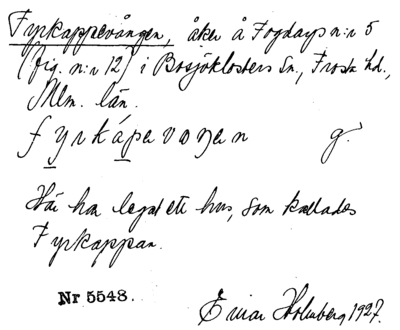 Fyrkappevången, åker å Fogdarps n:r 5
(fig. n:r 12) i Bosjöklosters sn., Frosta hd.,
Mlm. län.
fyrkápevaŋen g.
Här har legat ett hus, som kallades
Fyrkappan.
Nr 5548.
Einar Holmberg 1927.